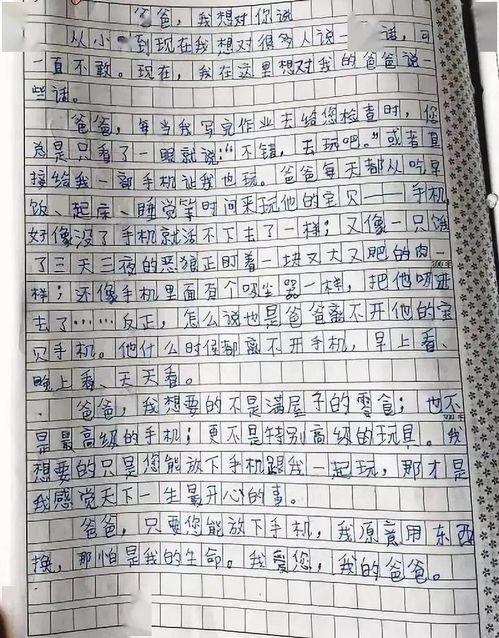 爸爸，我想对你说
从小到现在我想对很多人说一话，可
一直不敢。现在，我在这里想对我的爸爸说一
些话。
爸爸，每当我写完作业去给您检查时，您
总是只看了一眼就说：“不错，去玩吧。”或者直
接给我一部手机让我也玩。爸爸每天都从吃早
饭、起床、睡觉等时间来玩他的宝贝——手机，
好像没了手机就活不下去了一样；又像一只饿
了三天三夜的恶狼正盯着一块又大又肥的肉一
样；还像手机里面有个吸尘器一样，把他吸进
去了……反正，怎么说也是爸爸离不开他的宝
贝手机。他什么时候都离不开手机，早上看、
晚上看、天天看。
爸爸，我想要的不是满屋子的零食；也不
是最高级的手机；更不是特别高级的玩具。我
想要的只是您能放下手机跟我一起玩，那才是
我感觉天下一生最开心的事。
爸爸，只要您能放下手机，我原意用东西
换，那怕是我的生命。我爱您，我的爸爸。